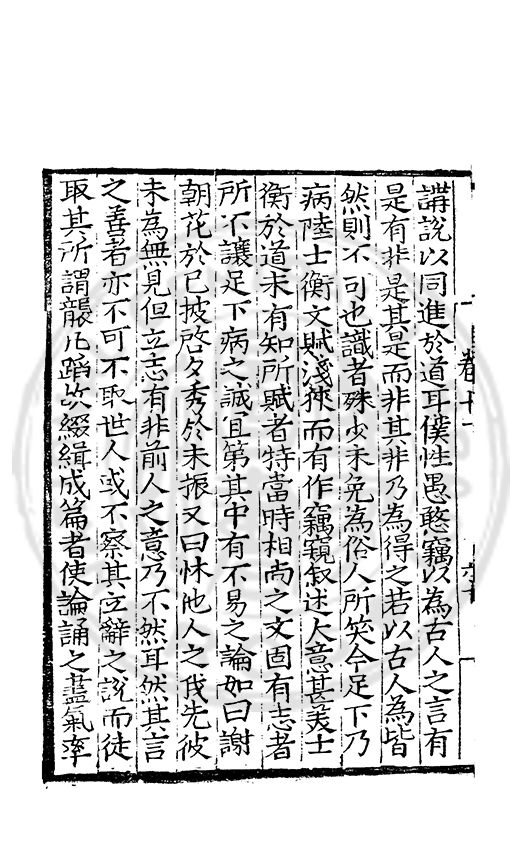 講說以同進於道耳僕性愚憨竊以為古人之言有
是有非是其是而非其非乃為得之若以古人為皆
然則不可也識者殊少未免為俗人所笑今足下乃
病陸士衡文賦淺狹而有作竊窺叙述大意甚美士
衡於道未有知所賦者特當時相尚之文固有志者
所不讓足下病之誠宜第其中有不易之論如曰謝
朝花於已披啓夕秀於未振又曰怵他人之我先彼
未為無見但立志有非前人之意乃不然耳然其言
之善者亦不可不取世人或不察其立辭之說而徒
取其所謂襲凡蹈 綴緝成篇者使論誦之盡氣率
卷十